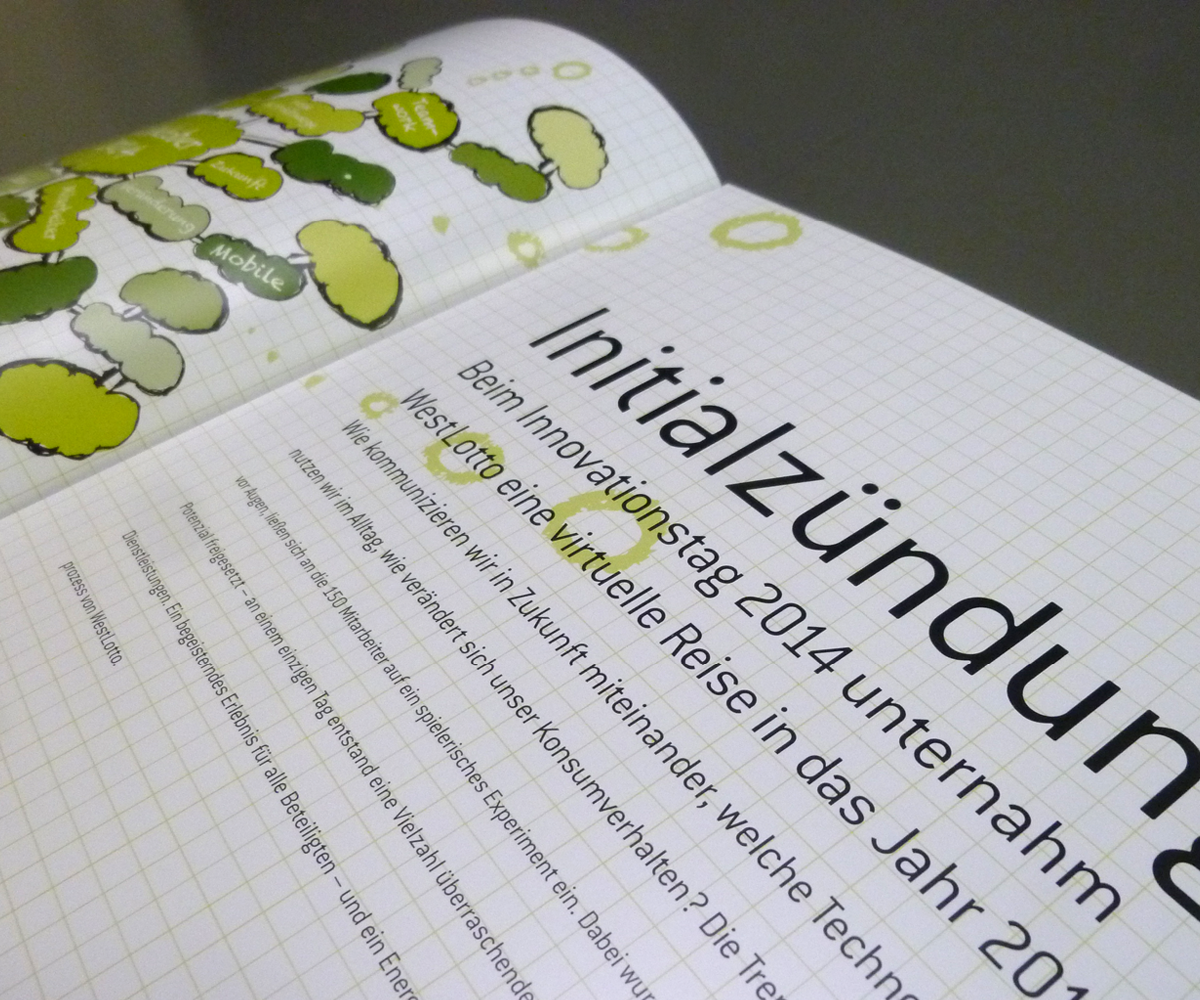 Team-
work
Zukunft
Mobile
Initialzündung
Beim Innovationstag 2014 unternahm
WestLotto eine virtuelle Reise in das Jahr 201
Wie kommunizieren wir in Zukunft miteinander, welche Techno
nutzen wir im Alltag, wie verändert sich unser Konsumverhalten? Die Tren
vor Augen, ließen sich an die 150 Mitarbeiter auf ein spielerisches Experiment ein. Dabei wur
Potenzial freigesetzt – an einem einzigen Tag entstand eine Vielzahl überraschende
Dienstleistungen. Ein begeisterndes Erlebnis für alle Beteiligten – und ein Energ
prozess von WestLotto.